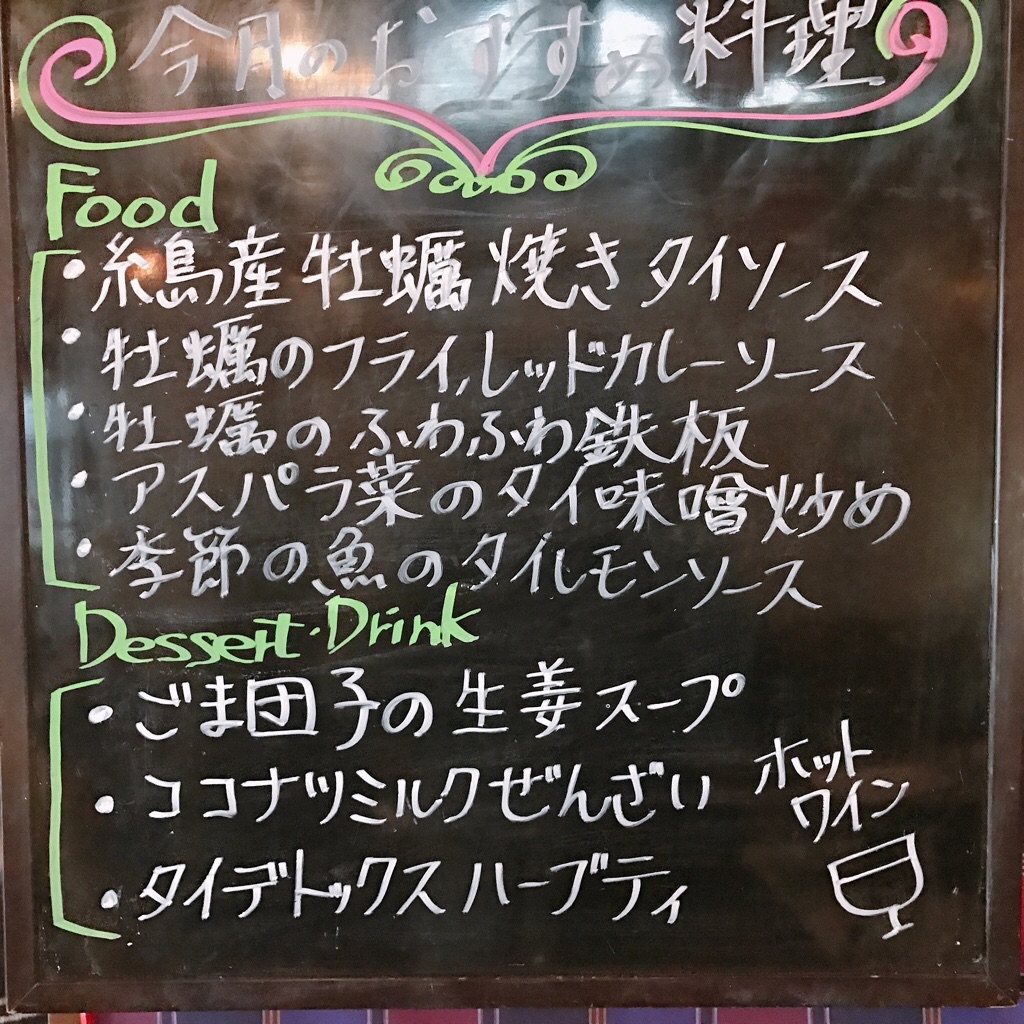 今月のおすすめ料理
Food
・糸島産牡蠣焼きタイソース
・牡蠣のフライ,レッドカレーソース
・牡蠣のふわふわ鉄板
・アスパラ菜のタイ味噌炒め
・季節の魚のタイレモンソース
Dessert・Drink
・ごま団子の生姜スープ
・ココナツミルクぜんざい
ホット
ワイン
・タイデトックスハーブティ